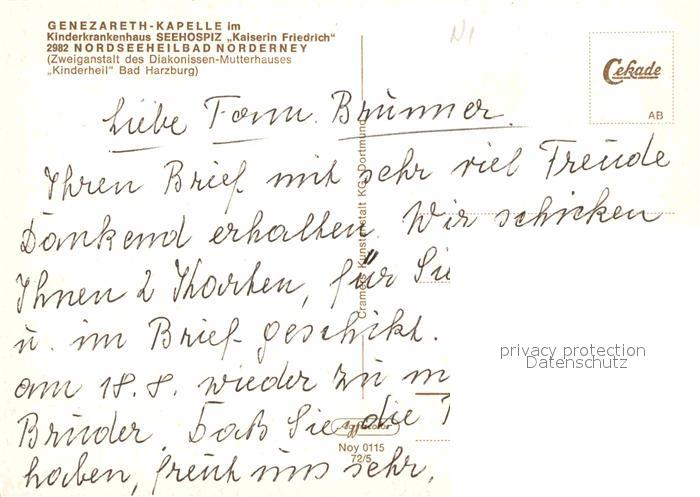 GENEZARETH-KAPELLE im
Kinderkrankenhaus SEEHOSPIZ „Kaiserin Friedrich"
2982 NORDSEEHEILBAD NORDERNEY
(Zweiganstalt des Diakonissen-Mutterhauses
„Kinderheil" Bad Harzburg)
Cekade
AB
Liebe Fam. Brünner.
Ihren Brief mit sehr viel Freude
Dankend erhalten. Wir schicken
Ihnen 2 Karten, für Sie
u. im Brief geschikt.
am 18.8. wieder zu m
Brüder. Daß Sie die
haben, freut uns sehr,
Cramers Kunstanstalt KG, Dortmund
Noy 0115
72/5
privacy protection
Datenschutz